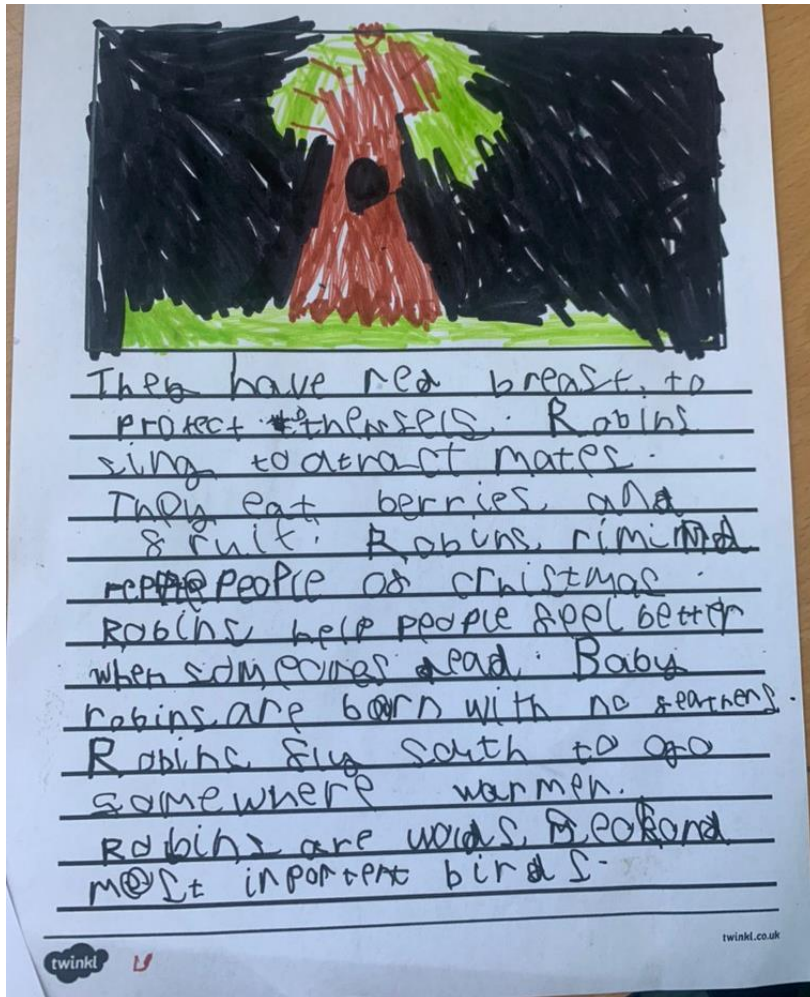 They have red breast to
protect themsels. Robins
sing to atract mates.
They eat berries and
fruit. Robins rimind
people of christmas.
Robins help people feel better
when someones dead. Baby
robins are born with no feathers.
Robins fly south to go
somewhere warmer.
Robins are
most inportent birds.
twinkl.co.uk
twinkl